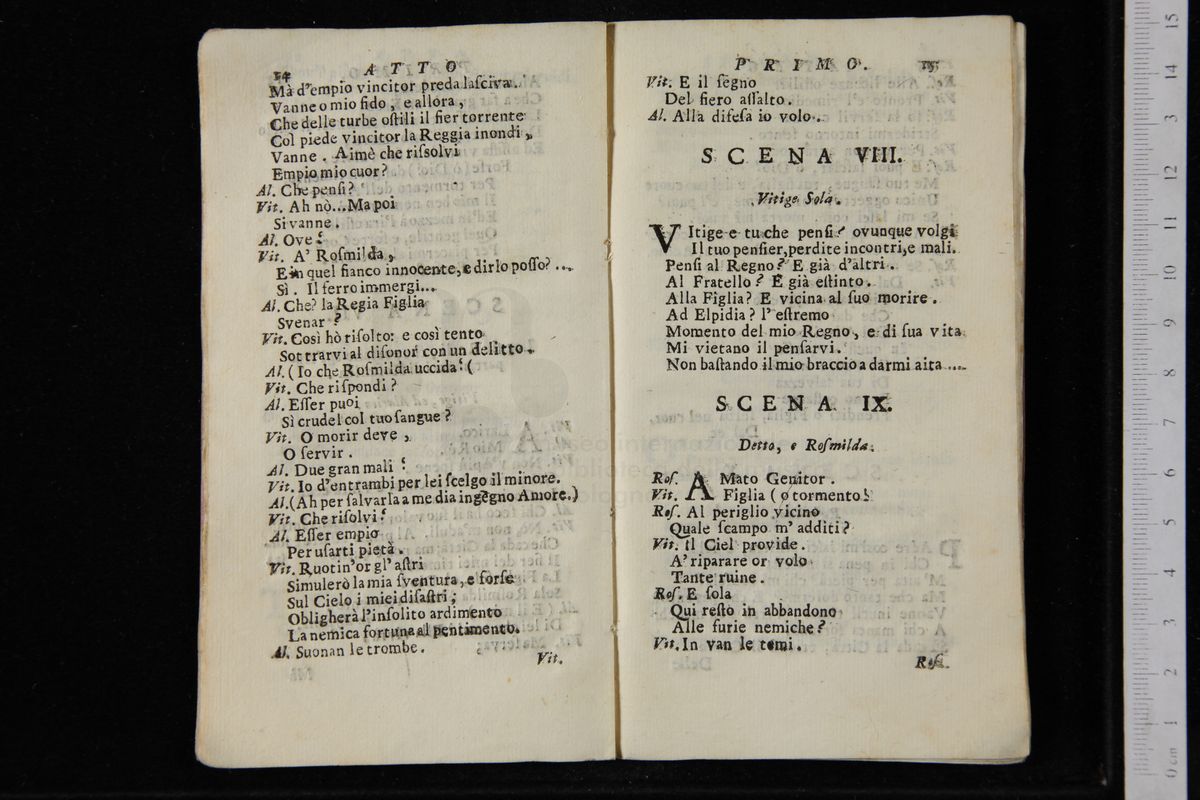 14 ATTO
Mà d'empio vincitor preda lasciva.
Vanne o mio fido, e allora,
Che delle turbe ostili il fier torrente
Col piede vincitor la Reggia inondi,
Vanne. Aimè che risolvi
Empio mio cuor?
Al. Che pensi?
Vit. Ah nò...Ma poi
Si vanne.
Al. Ove?
Vit. A' Rosmilda,
E in quel fianco innocente, e dirlo posso?....
Sì. Il ferro immergi....
Al. Che? la Regia Figlia
Svenar?
Vit. Così hò risolto: e così tento
Sottrarvi al disonor con un delitto.
Al. (Io che Rosmilda uccida? (
Vit. Che rispondi?
Al. Esser puoi
Sì crudel col tuo sangue?
Vit. O morir deve,
O servir.
Al. Due gran mali!
Vit. Io d'entrambi per lei scelgo il minore.
Al. (Ah per salvarla a me dia ingegno Amore.)
Vit. Che risolvi?
Al. Esser empio
Per usarti pietà.
Vit. Ruotin'or gl'astri
Simulerò la mia sventura, e forse
Sul Cielo i miei disastri;
Obligherà l'insolito ardimento
La nemica fortuna al pentimento.
Al. Suonan le trombe.
Vit.
PRIMO. 15
Vit. E il segno
Del fiero assalto.
Al. Alla difesa io volo.
SCENA VIII.
Vitige Solo.
VItige e tu che pensi? ovunque volgi
Il tuo pensier, perdite incontri, e mali.
Pensi al Regno? E già d'altri.
Al Fratello? E già estinto.
Alla Figlia? E vicina al suo morire.
Ad Elpidia? l'estremo
Momento del mio Regno, e di sua vita
Mi vietano il pensarvi.
Non bastando il mio braccio a darmi aita ....
SCENA IX.
Detto, e Rosmilda.
Ros. AMato Genitor.
Vit. Figlia (o tormento!
Ros. Al periglio vicino
Quale scampo m'additi?
Vit. Il Ciel provide.
A' riparare or volo
Tante ruine.
Ros. E sola
Qui resto in abbandono
Alle furie nemiche?
Vit. In van le temi.
Ros.